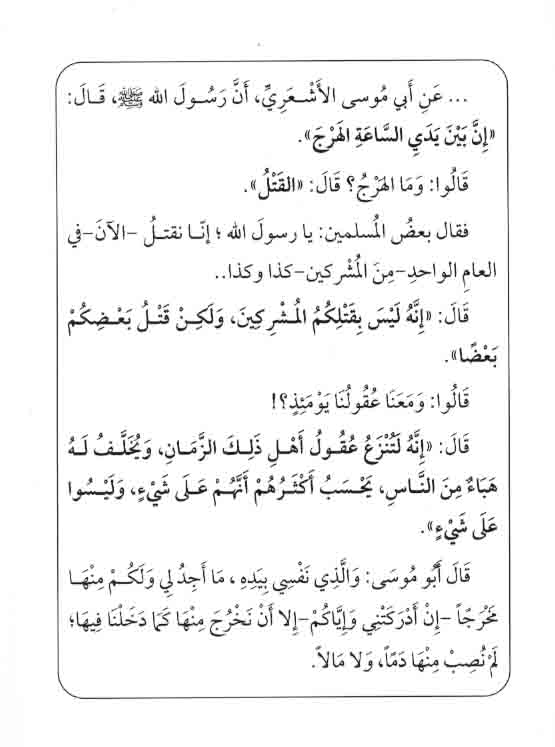 ... عَنِ أَبي مُوسى الأَشْعَرِيِّ، أَنَّ رَسُولَ الله ﷺ، قَالَ:
«إِنَّ بَيْنَ يَدَيِ السَّاعَةِ الهَرْجَ».
قَالُوا: وَمَا الهَرْجُ؟ قَالَ: «القَتْلُ».
فقال بعضُ المُسلمين: يا رسولَ الله ؛ إنّا نقتلُ –الآنَ–في
العامِ الواحدِ–مِنَ المُشْركين–كذا وكذا..
قَالَ: «إِنَّهُ لَيْسَ بِقَتْلِكُمُ المُشْرِكِينَ، وَلَكِنْ قَتْلُ بَعْضِكُمْ
بَعْضًا».
قَالُوا: وَمَعَنَا عُقُولُنَا يَوْمَئِذٍ؟!
قَالَ: «إِنَّهُ لَتُنْزَعُ عُقُولُ أَهْلِ ذَلِكَ الزَّمَانِ، وَيُخَلَّفُ لَهُ
هَبَاءٌ مِنَ النَّاسِ، يَحْسَبُ أَكْثَرُهُمْ أَنَّهُمْ عَلَى شَيْءٍ، وَلَيْسُوا
عَلَى شَيْءٍ».
قَالَ أَبُو مُوسَى: وَالَّذِي نَفْسِي بِيَدِهِ، مَا أَجِدُ لِي وَلَكُمْ مِنْهَا
مَخْرُجَاً –إِنْ أَدْرَكَتْنِي وَإِيَّاكُمْ–إِلا أَنْ نَخْرُجَ مِنْهَا كَمَا دَخَلْنَا فِيهَا؛
لَمْ نُصِبْ مِنْهَا دَمَاً، وَلا مَالاً.